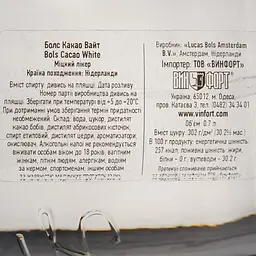 Болс Какао Вайт
Bols Cacao White
Міцний лікер
Країна походження: Нідерланди
Вміст спирту дивись на пляшці. Дата розливу
та номер партії місце нанесення дивись на
пляшці. Зберігати при температурі від +5 до +20°С
При дотриманні умов зберігання термін придатності
необмежений. Склад: вода, цукор, дистилят
какао бобів, дистилят абрикосових кісточок,
спирт етиловий, дистилят цедри, ароматизатор
ваніліну. Алкогольні напої не рекомендується
вживати особам віком до 18 років, вагітним
жінкам, літнім людям, алергікам, водіям
за кермом, спортсменам, іншим особам
Виробник: «Lucas Bols Amsterdam
B.V.», Амстердам, Нідерланди
Імпортер: ТОВ «ВИНФОРТ»
ВИНФОРТ
Україна, 65012, м. Одеса,
пров. Катаєва 3, тел. (0482) 34 34 01
www.vinfort.com
Об'єм: 0.7 л
Вміст цукру: 302 г/дм³ (30.2% мас.)
В 100 г продукту: енергетична цінність
257 ккал, поживна цінність: жири,
білки - 0 г, вуглеводи - 30.2 г.